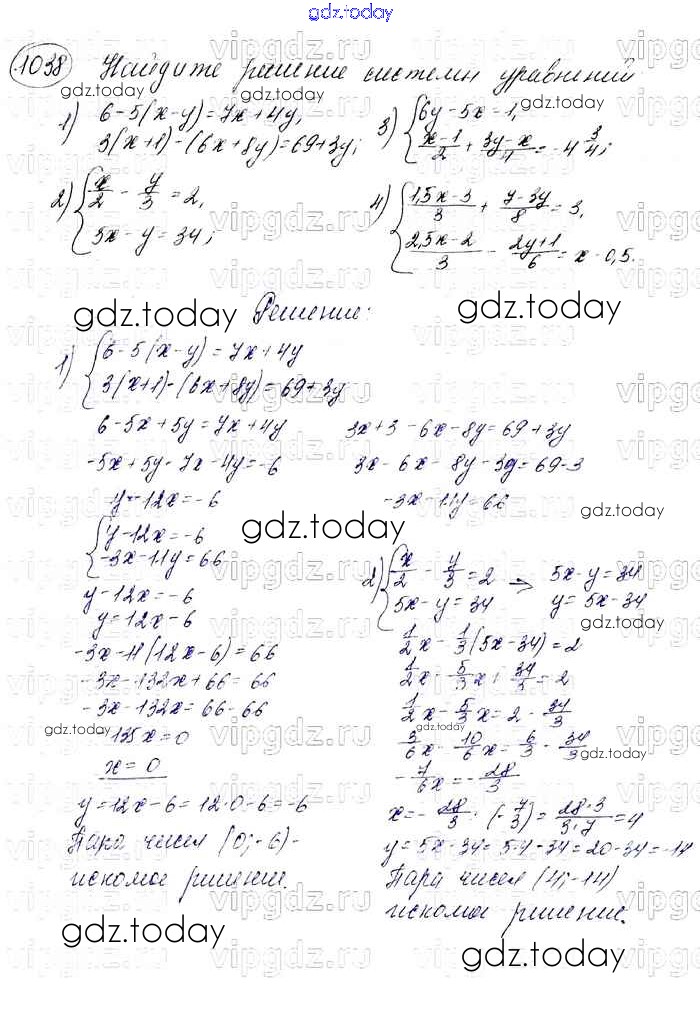 gdz.today
1038 Найдите решение системы уравнений
1) 6-5(x-y)=7x+4y,
3(x+1)-(6x+8y)=69+3y;
2) { x/2 - y/3 = 2,
5x-y=34;
3) { 6y-5x=1,
x-1/2 + 3y-x/4 = -4 3/4;
4) { 1,5x-3/3 + 7-3y/8 = 3,
2,5x-2/3 - 2y+1/6 = x-0,5.
gdz.today
Решение:
gdz.today
1) { 6-5(x-y)=7x+4y
3(x+1)-(6x+8y)=69+3y
6-5x+5y=7x+4y
-5x+5y-7x-4y=-6
y-12x=-6
3x+3-6x-8y=69+3y
3x-6x-8y-3y=69-3
-3x-11y=66
gdz.today
{ y-12x=-6
-3x-11y=66
y-12x=-6
y=12x-6
-3x-11(12x-6)=66
-3x-132x+66=66
-3x-132x=66-66
-135x=0
x=0
y=12x-6=12·0-6=-6
Пара чисел (0;-6)-
искомое решение.
2) { x/2 - y/3 = 2
5x-y=34
5x-y=34
y=5x-34
1/2x - 1/3(5x-34)=2
1/2x - 5/3x + 34/3 = 2
1/2x - 5/3x = 2 - 34/3
3/6x - 10/6x = 6/3 - 34/3
-7/6x = -28/3
x=- 28/3 · (- 7/3) = 28·3/3·7 = 4
y=5x-34=5·4-34=20-34=-14
Пара чисел (4;-14)
искомое решение.
gdz.today
gdz.today